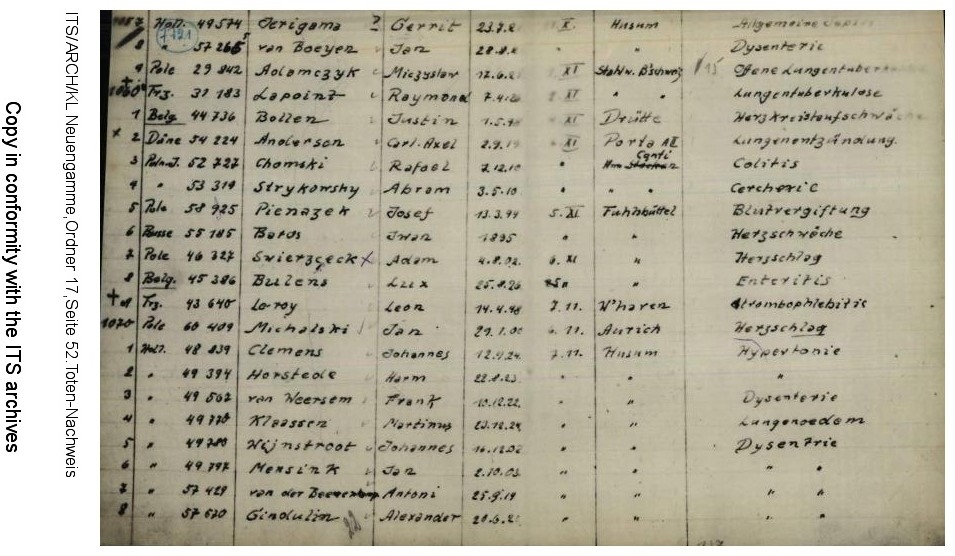 Copy in conformity with the ITS archives
ITS/ARCH/KL Neuengamme, Ordner 17, Seite 52. Toten-Nachweis
Holl. 49574 Gerrit 23.7. X. Husum
8 " 57 265 van Boeyen Jan 28.8. " " Dysenterie
9 Pole 29 842 Adamczyk Mieczyslaw 12.6. XI Offene
1060 Frz. 31 183 Lapoint Raymond 7.4. XI " " Lungentuberkulose
1 Belg 44 736 Bollen Justin 1.5. XI Drütte
2 Däne 54 224 Anderson Carl-Axel 2.9.19 XI Porta Lungenentzündung.
3 52 727 Chomski Rafael 7.12.10 " Conti Colitis
4 " 53 319 Strykowsky Abram 3.5.10 " " "
5 Pole 58 925 Pienazek Josef 13.3.99 5. XI Fuhlsbüttel Blutvergiftung
6 Russe 55 185 Iwan 1895 " " Herzschwäche
7 Pole 46 327 Adam 4.8.02. 6. XI " Herzschlag
8 Belg. 45 386 Bulens Lux 25.8.26 " Enteritis
9 Frz. 43 640 Leroy Leon 14.4.98 7.11. W'haven
1070 Pole 60 409 Michalski Jan 29.1.00 6.11. Aurich Herzschlag
1 Holl. 48 839 Clemens Johannes 12.4.24. 7.11. Husum Hypertonie
2 " 49 394 Horstede Harm 22.8.23. " " "
3 " 49 567 van Weersem Frank 10.12.22. " " Dysenterie
4 " 49 770 Klaassen Martinus 23.12.24 " " Lungenoedem
5 " 49 780 Wijnstroot Johannes " " Dysentrie
6 " 49 797 Mensink Jan 2.10.03. " " " "
7 " 57 429 van der Antoni 25.9.19 " " " "
8 " 57 670 Gindulin Alexander 20.6. " " " "